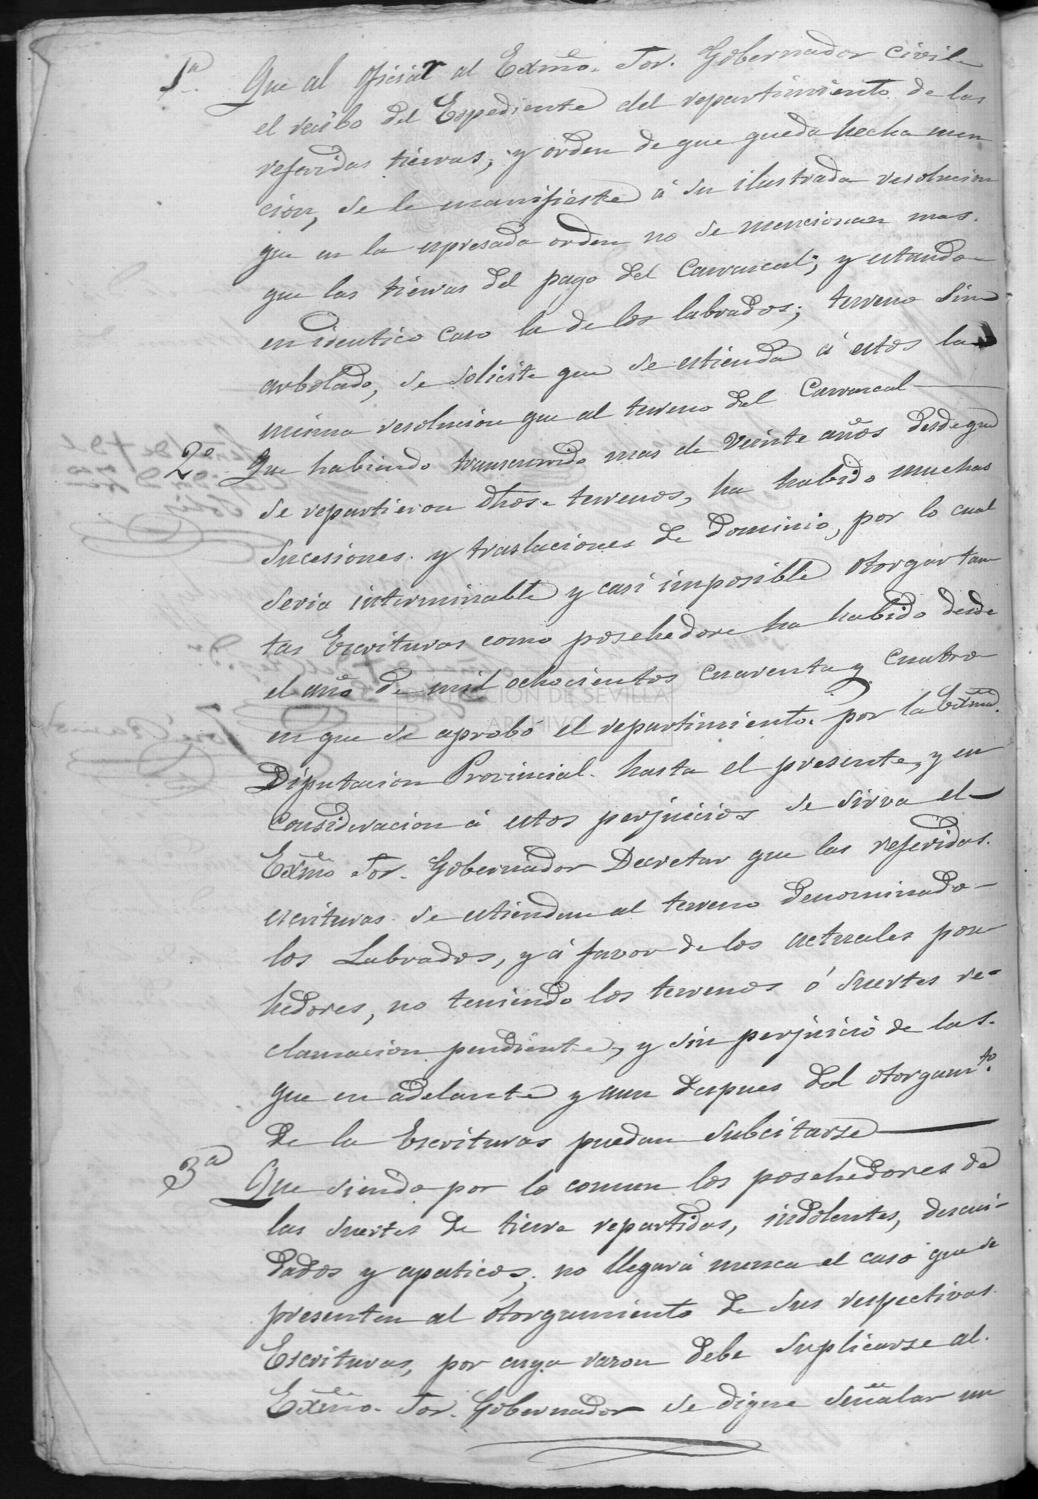 1ª. Que al oficiar al Exmo. Sor. Gobernador civil
el recibo del Espediente del repartimiento de las
referidas tierras, y orden de que queda hecha men
cion, se le manifieste á su ilustrada resolucion
que en la espresada orden no se mencionan mas.
que las tierras del pago del Carrascal; y estando
en identico caso la de los labrados; terreno sin
arbolado, se solicite que se estienda á estos la
misma resolucion que al terreno del Carrascal
2ª. Que habiendo transcurrido mas de veinte años desde que
se repartieron dhos. terrenos, ha habido muchas
sucesiones. y traslaciones de dominio, por lo cual
seria interminable y casi imposible otorgar tan
tas Escrituras como posehedore ha habido desde
el año de mil ochocientos cuarenta y cuatro
en que se aprobó el repartimiento. por la Exma.
Diputacion Provincial. hasta el presente, y en
consideracion á estos perjuicios se sirva el
Exmo. Sor. Gobernador Decretar que las referidas.
escrituras. se estiendan al terreno denominado
los Labrados, y á favor de los actuales pose
hedores, no teniendo los terrenos ó suertes re-
clamacion pendiente, y sin perjuicio de las.
que en adelante y aun despues del otorgamto.
de la Escrituras puedan subcitarse
3ª Que siendo por lo comun los posehedores de
las suertes de tierra repartidas, indolentes, descui-
dados y apaticos, no llegará nunca el caso que se
presenten al otorgamiento de sus respectivas.
Escrituras, por cuya razon debe suplicarse al.
Exmo. Sor. Gobernador se digne señalar un
DIPUTACION DE SEVILLA
ARCHIVO